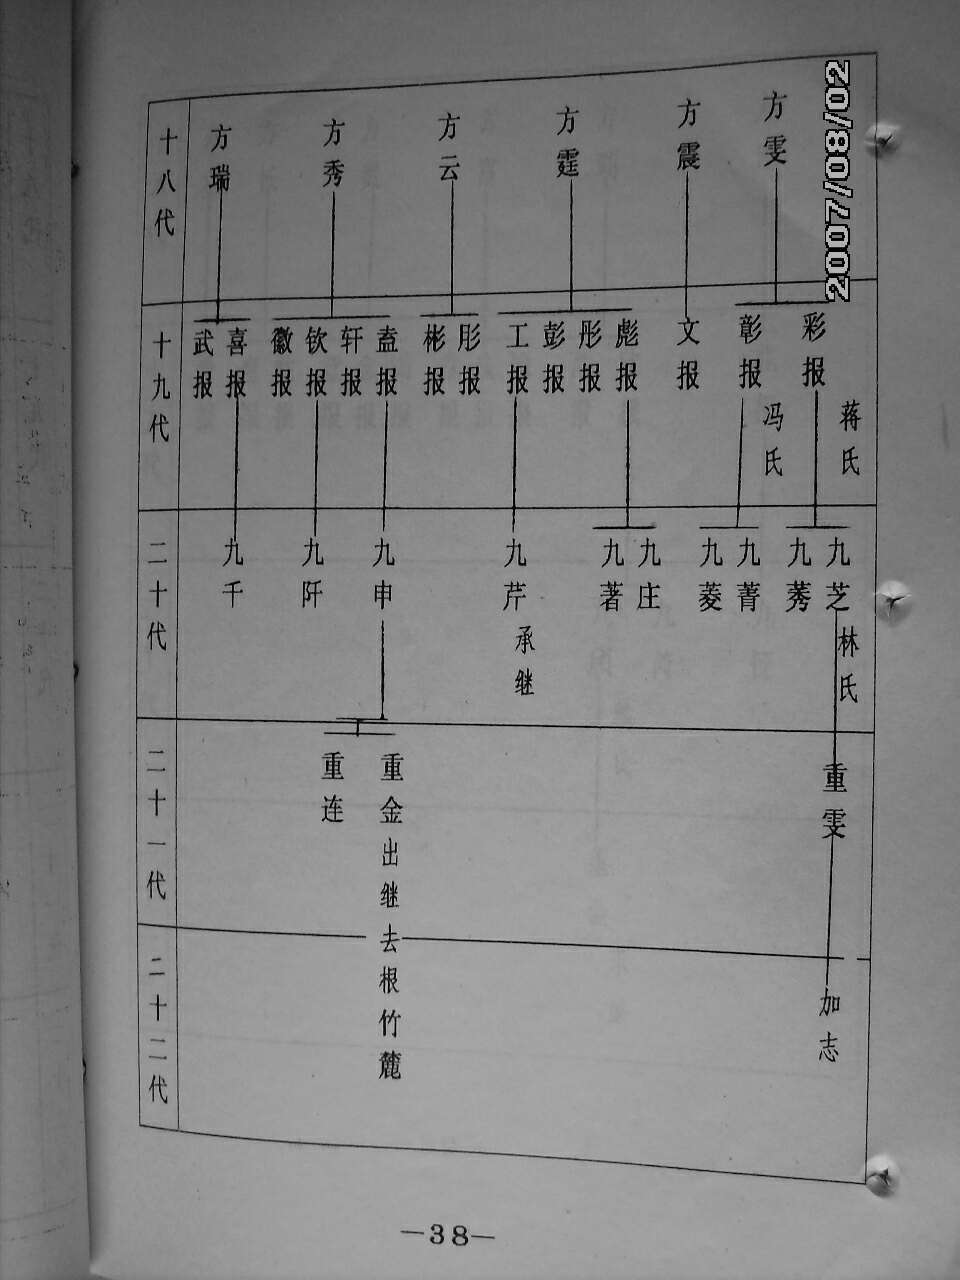 2007/08/02
十八代
方雯
方震
方霆
方云
方秀
方瑞
十九代
彩报
蒋氏
彰报
冯氏
文报
彪报
彤报
彭报
工报
肜报
彬报
盍报
轩报
钦报
徽报
喜报
武报
二十代
九芝
林氏
九莠
九菁
九菱
九庄
九著
九芹
承继
九申
九阡
九千
二十一代
重雯
重金出继去根竹麓
重连
二十二代
加志
—38—